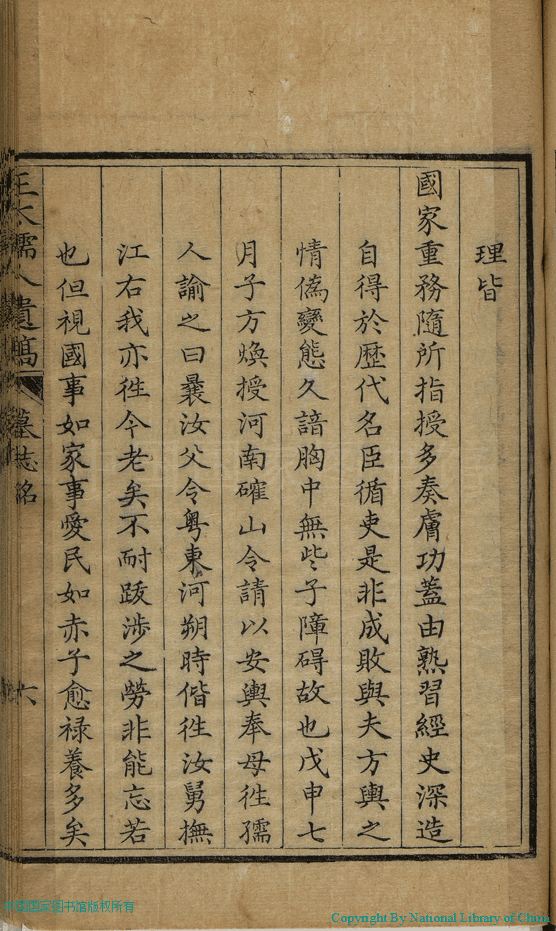 理皆
國家重務隨所指授多奏膚功蓋由熟習經史深造
自得於歴代名臣循吏是非成敗與夫方輿之
情偽變態久諳胸中無些子障碍故也戊申七
月子方煥授河南確山令請以安輿奉母徃孺
人諭之曰曩汝父令粤東河朔時偕徃汝舅撫
江右我亦徃今老矣不耐跋涉之勞非能忘若
也但視國事如家事愛民如赤子愈禄養多矣
王太孺人遺稿 墓志銘 六
中国国家图书馆版权所有
Copyright By National Library of China